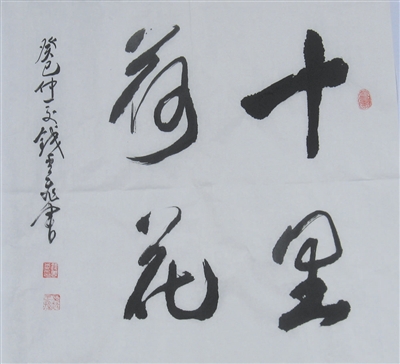 十里
荷花
癸巳仲夏钱
书